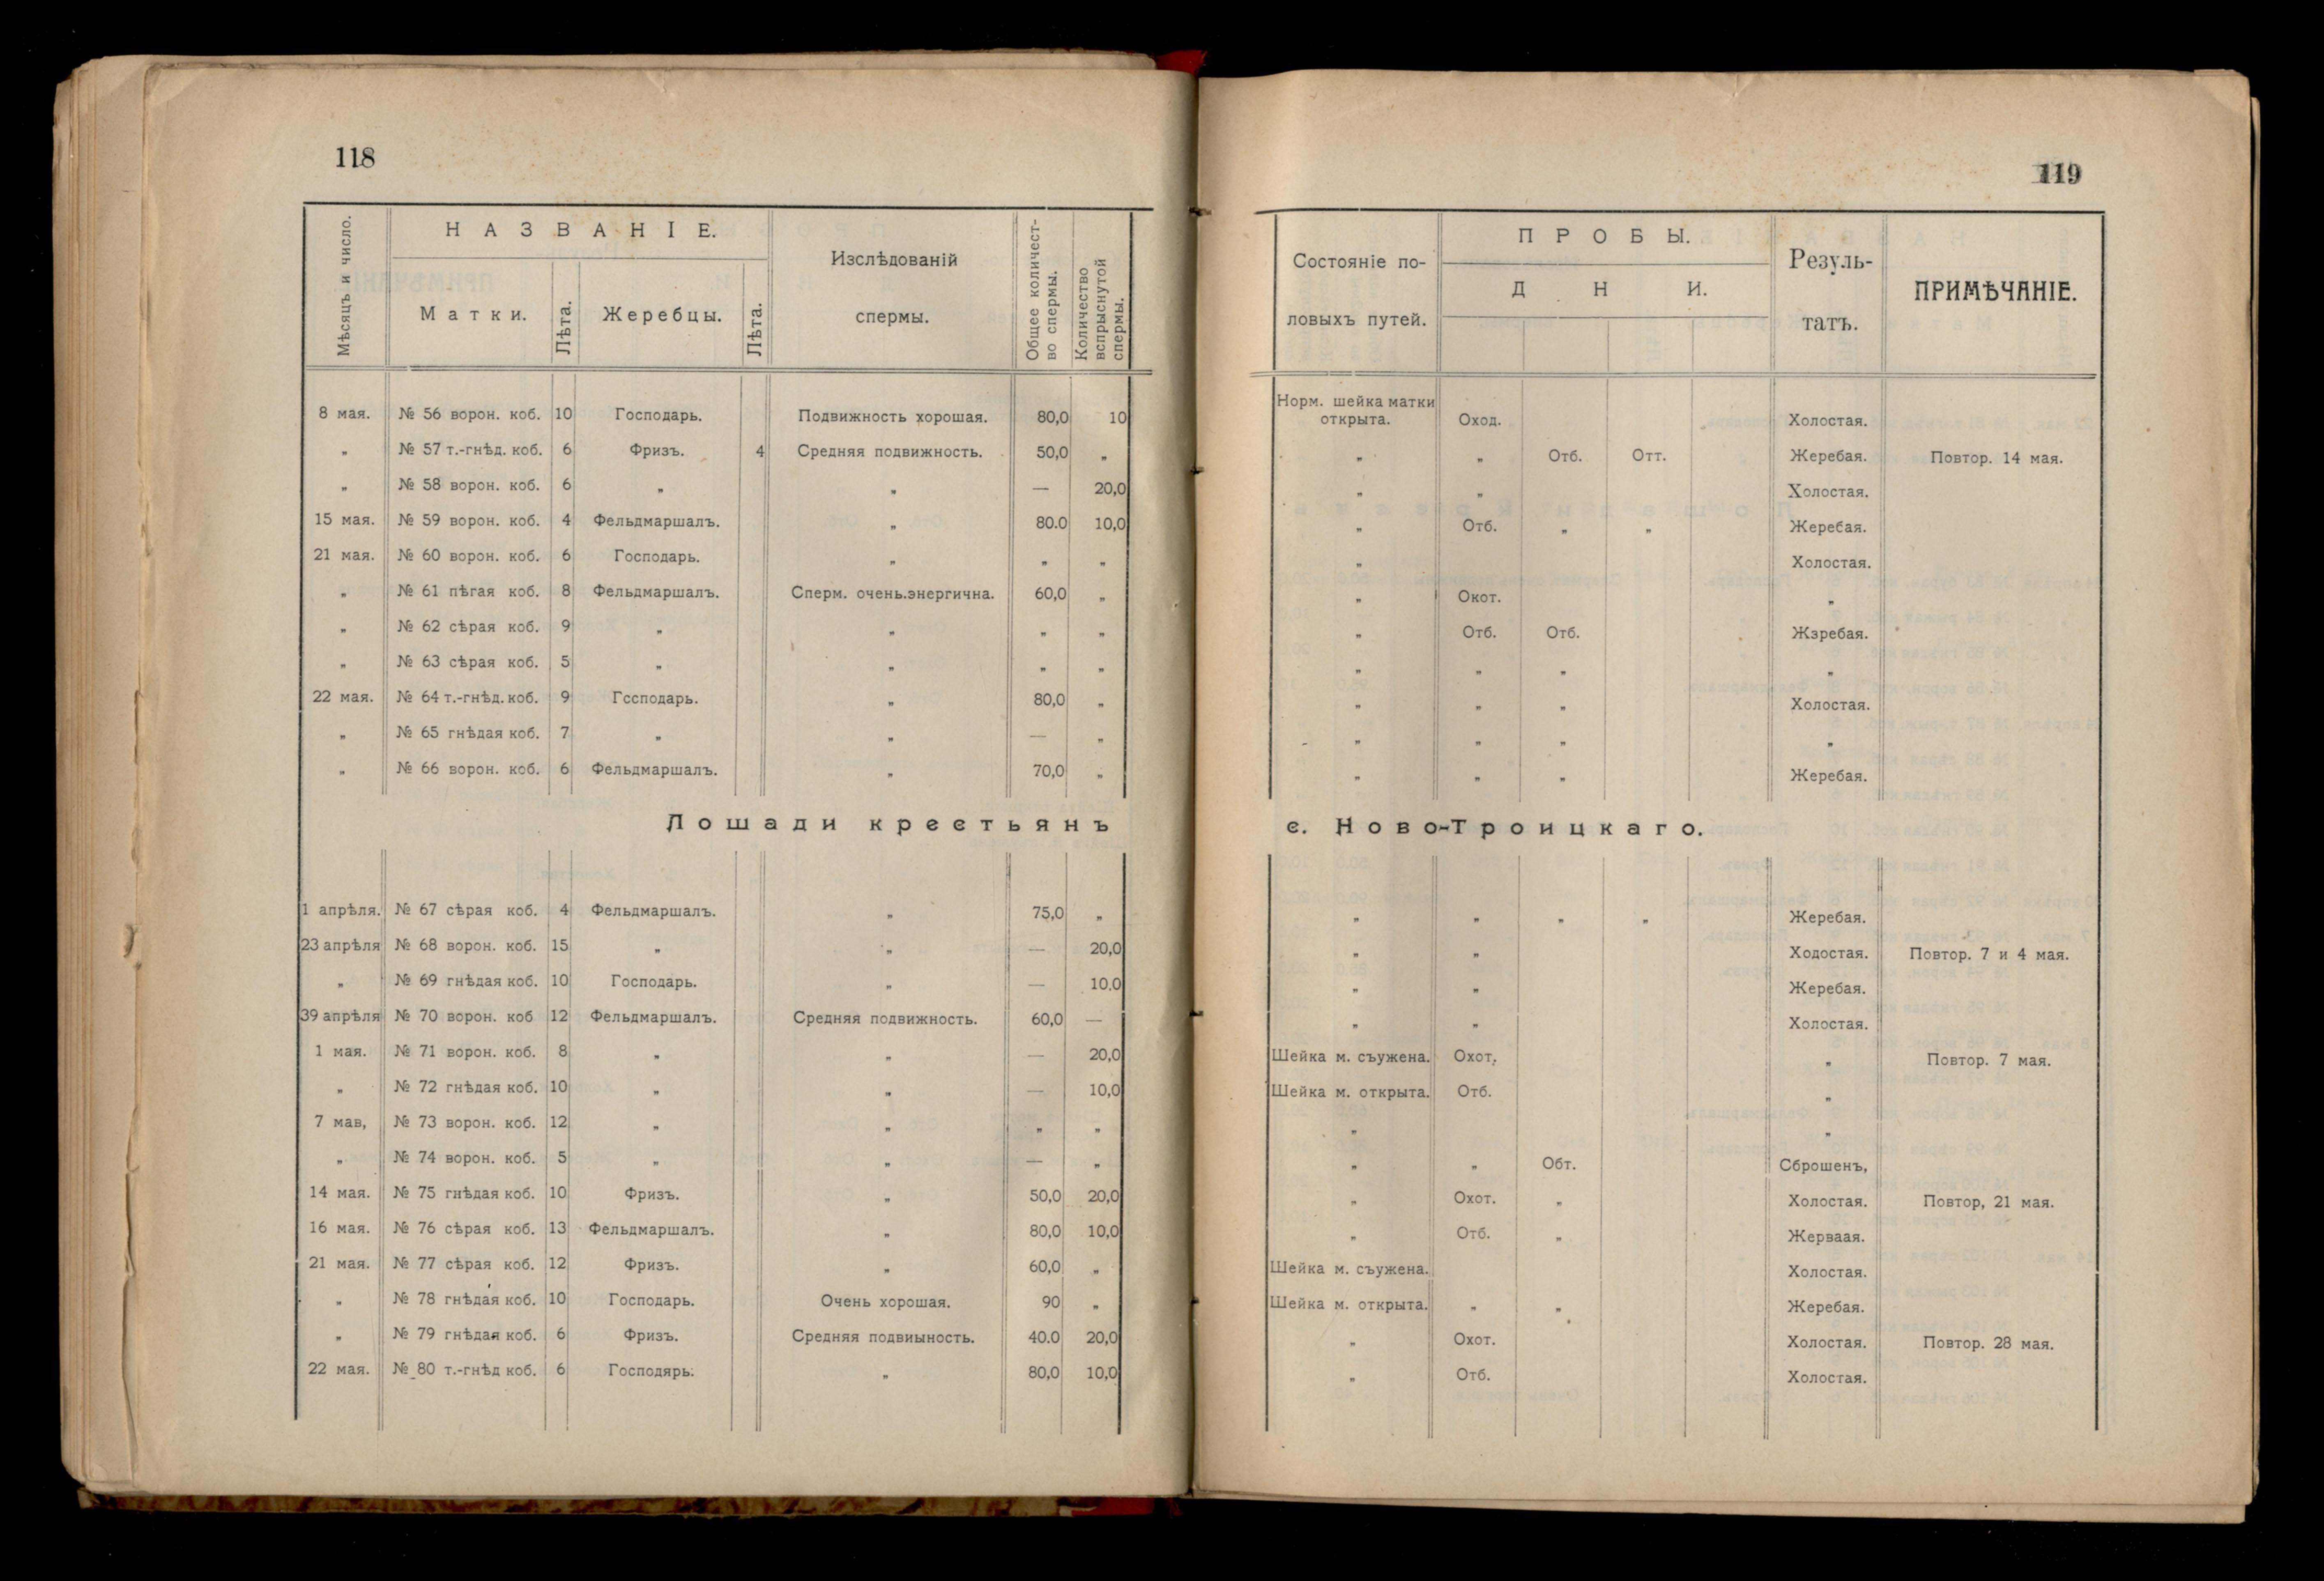 118
Мѣсяцъ и число.
НАЗВАНІЕ.
Матки.
Лѣта.
Жеребцы.
Лѣта.
Изслѣдованій
спермы.
Общее количест-
во спермы.
Количество
вспрыснутой
спермы.
8 мая. № 56 ворон. коб. 10 Господарь. Подвижность хорошая. 80,0 10
„ № 57 т.-гнѣд. коб. 6 Фризъ. 4 Средняя подвижность. 50,0 „
„ № 58 ворон. коб. 6 „ „ — 20,0
15 мая. № 59 ворон. коб. 4 Фельдмаршалъ. „ 80.0 10,0
21 мая. № 60 ворон. коб. 6 Господарь. „ „ „
„ № 61 пѣгая коб. 8 Фельдмаршалъ. Сперм. очень.энергична. 60,0 „
„ № 62 сѣрая коб. 9 „ „ „ „
„ № 63 сѣрая коб. 5 „ „ „ „
22 мая. № 64 т.-гнѣд. коб. 9 Гссподарь. „ 80,0 „
„ № 65 гнѣдая коб. 7 „ „ — „
„ № 66 ворон. коб. 6 Фельдмаршалъ. „ 70,0 „
Лошади крестьянъ
1 апрѣля. № 67 сѣрая коб. 4 Фельдмаршалъ. „ 75,0 „
23 апрѣля № 68 ворон. коб. 15 „ „ — 20,0
„ № 69 гнѣдая коб. 10 Господарь. „ — 10,0
39 апрѣля № 70 ворон. коб 12 Фельдмаршалъ. Средняя подвижность. 60,0 —
1 мая. № 71 ворон. коб. 8 „ „ — 20,0
„ № 72 гнѣдая коб. 10 „ „ — 10,0
7 мав, № 73 ворон. коб. 12 „ „ „ „
„ № 74 ворон. коб. 5 „ „ — „
14 мая. № 75 гнѣдая коб. 10 Фризъ. „ 50,0 20,0
16 мая. № 76 сѣрая коб. 13 Фельдмаршалъ. „ 80,0 10,0
21 мая. № 77 сѣрая коб. 12 Фризъ. „ 60,0 „
„ № 78 гнѣдая коб. 10 Господарь. Очень хорошая. 90 „
„ № 79 гнѣдая коб. 6 Фризъ. Средняя подвиыность. 40.0 20,0
22 мая. № 80 т.-гнѣд коб. 6 Господярь. „ 80,0 10,0
119
Состояніе по-
ловыхъ путей.
ПРОБЫ.
ДНИ.
Резуль-
татъ.
ПРИМѢЧАНІЕ.
Норм. шейка матки
открыта. Оход. Холостая.
„ „ Отб. Отт. Жеребая. Повтор. 14 мая.
„ „ Холостая.
„ Отб. „ „ Жеребая.
„ Холостая.
„ Окот. „
„ Отб. Отб. Жзребая.
„ „ „ „
„ „ „ Холостая.
„ „ „ „
„ „ „ Жеребая.
с. Ново-Троицкаго.
„ „ „ „ Жеребая.
„ „ Ходостая. Повтор. 7 и 4 мая.
„ „ Жеребая.
„ „ Холостая.
Шейка м. съужена. Охот. „ Повтор. 7 мая.
Шейка м. открыта. Отб. „
„ „
„ „ Обт. Сброшенъ,
„ Охот. „ Холостая. Повтор, 21 мая.
„ Отб. „ Жерваая.
Шейка м. съужена. Холостая.
Шейка м. открыта. „ „ Жеребая.
„ Охот. Холостая. Повтор. 28 мая.
„ Отб. Холостая.